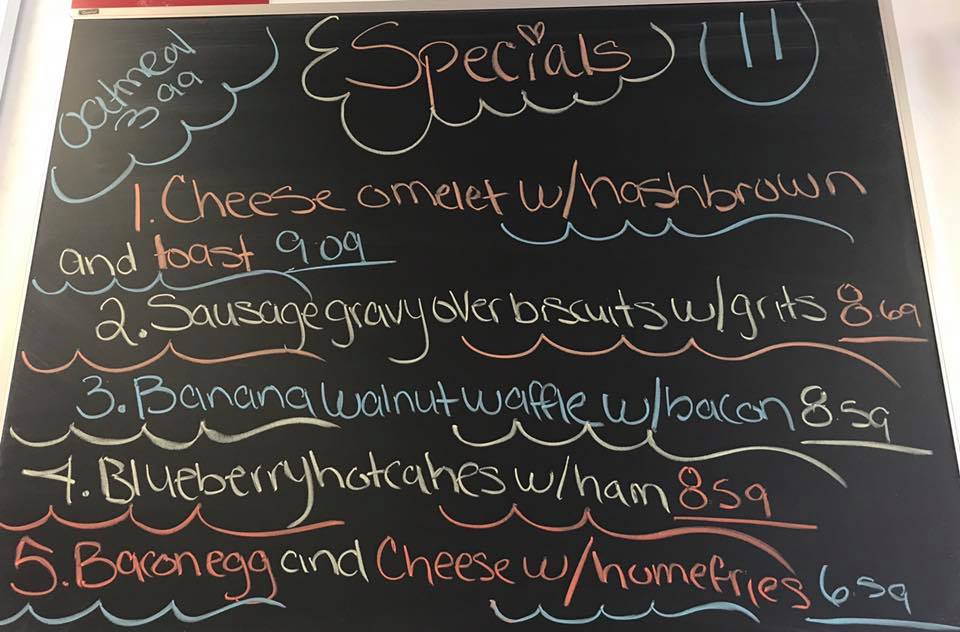 Oatmeal
3 99
Specials
1. Cheese omelet w/hashbrown
and toast 9.09
2. Sausage gravy over biscuits w/grits 8 69
3. Banana walnut waffle w/bacon 8.59
4. Blueberry hotcakes w/ham 8.59
5. Bacon egg and Cheese w/homefries 6.59